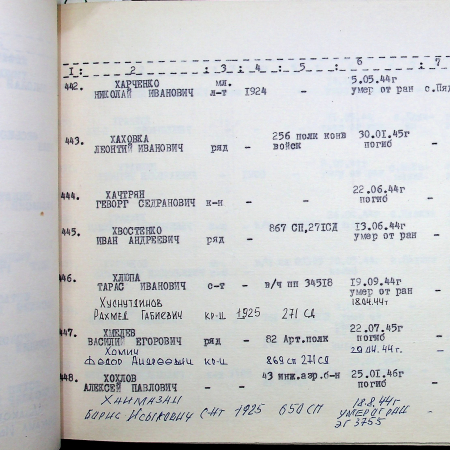 1: 2 : 3 : 4 : 5 : 6 : 7
442. ХАРЧЕНКО мл. 5.05.44г
НИКОЛАЙ ИВАНОВИЧ л-т 1924 - умер от ран с.Пяд
443. ХАХОВКА 256 полк конв 30.01.45г
ЛЕОНТИЙ ИВАНОВИЧ ряд - войск погиб -
444. ХАЧТРЯН 22.06.44г
ГЕВОРГ СЕДРАНОВИЧ к-н - - погиб -
445. ХВОСТЕНКО 867 СП,271СД 13.06.44г
ИВАН АНДРЕЕВИЧ ряд - умер от ран -
446. ХЛЮПА 19.09.44г
ТАРАС ИВАНОВИЧ с-т - в/ч пп 34518 умер от ран -
Хуснутдинов 18.04.44г
Рахмед Габиевич кр-ц 1925 271 сд
447. ХМЕЛЕВ 22.07.45г
ВАСИЛИЙ ЕГОРОВИЧ ряд - 82 Арт.полк погиб -
Хомич 29.04.44г.
Федор Андреевич кр-ц 869 сп 271сд
448. ХОХЛОВ 43 инж.аэр.б-н 25.01.46г
АЛЕКСЕЙ ПАВЛОВИЧ - - погиб -
18.8.44г
Борис С-нт 1925 650 СП УМЕР ОТ РАН
ЭГ 3755